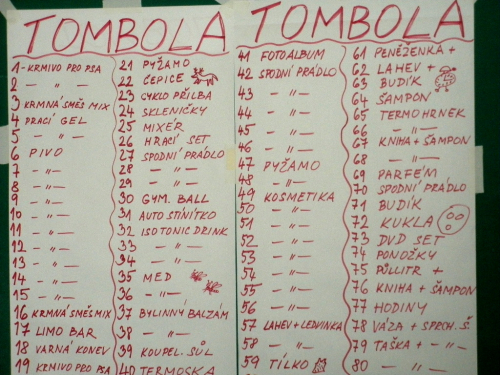 TOMBOLA
1 - KRMIVO PRO PSA
2 - -"-
3 KRMNÁ SMĚS MIX
4 PRACÍ GEL
5 -"-
6 PIVO
7 -"-
8 -"-
9 -"-
10 -"-
11 -"-
12 -"-
13 -"-
14 -"-
15 -"-
16 KRMNÁ SMĚS MIX
17 LIMO BAR
18 VARNÁ KONEV
19 KRMIVO PRO PSA
21 PYŽAMO
22 ČEPICE
23 CYKLO PŘILBA
24 SKLENIČKY
25 MIXÉR
26 HRACÍ SET
27 SPODNÍ PRÁDLO
28 -"-
29 -"-
30 GYM. BALL
31 AUTO STÍNÍTKO
32 ISOTONIC DRINK
33 -"-
34 -"-
35 MED
36 -"-
37 BYLINNÝ BALZÁM
38 -"-
39 KOUPEL. SŮL
40 TERMOSKA
TOMBOLA
41 FOTOALBUM
42 SPODNÍ PRÁDLO
43 -"-
44 -"-
45 -"-
46 -"-
47 PYŽAMO
48 -"-
49 KOSMETIKA
50 -"-
51 -"-
52 -"-
53 -"-
54 -"-
55 -"-
56 -"-
57 LAHEV + LEDVINKA
58 -"-
59 TÍLKO
61 PENĚŽENKA +
62 LAHEV +
63 BUDÍK
64 ŠAMPON
65 TERMOHRNEK
66 -"-
67 KNIHA + ŠAMPON
68 -"-
69 PARFÉM
70 SPODNÍ PRÁDLO
71 BUDÍK
72 KUKLA
73 DVD SET
74 PONOŽKY
75 PŮLLITR +
76 KNIHA + ŠAMPON
77 HODINY
78 VÁZA + SPRCH. Š.
79 TAŠKA + -"-
80 -"-